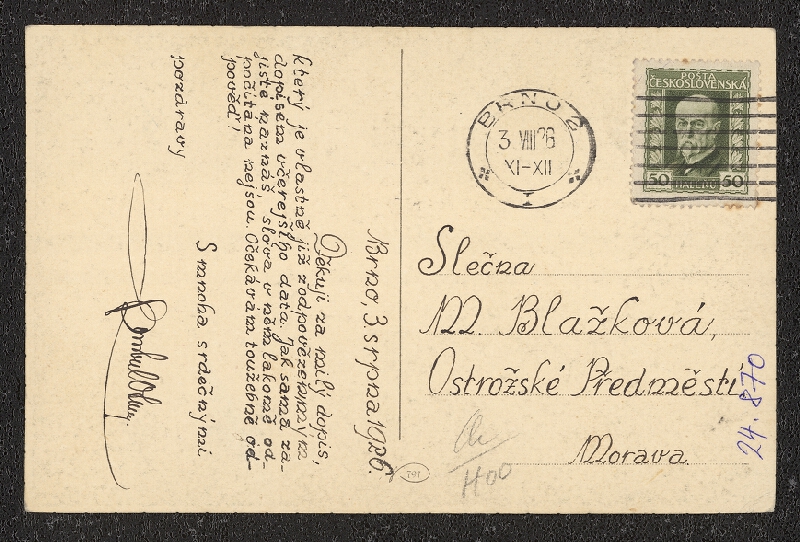 Brno, 3. srpna 1926.
Děkuji za milý dopis,
který je vlastně již zodpovězeným m
dopisem včerejšího data. Jak samá za-
jisté naznáš slova v něm lakomě od-
počítána nejsou. Očekávám toužebně od-
pověď!
S mnoha srdečnými
pozdravy
POŠTA
ČESKOSLOVENSKÁ
50 HALÉŘŮ 50
BRNO 2
3 VIII 26
XI-XII
1
Slečna
M. Blažková,
Ostrožské Předměstí
Morava.
24.870
797
H00